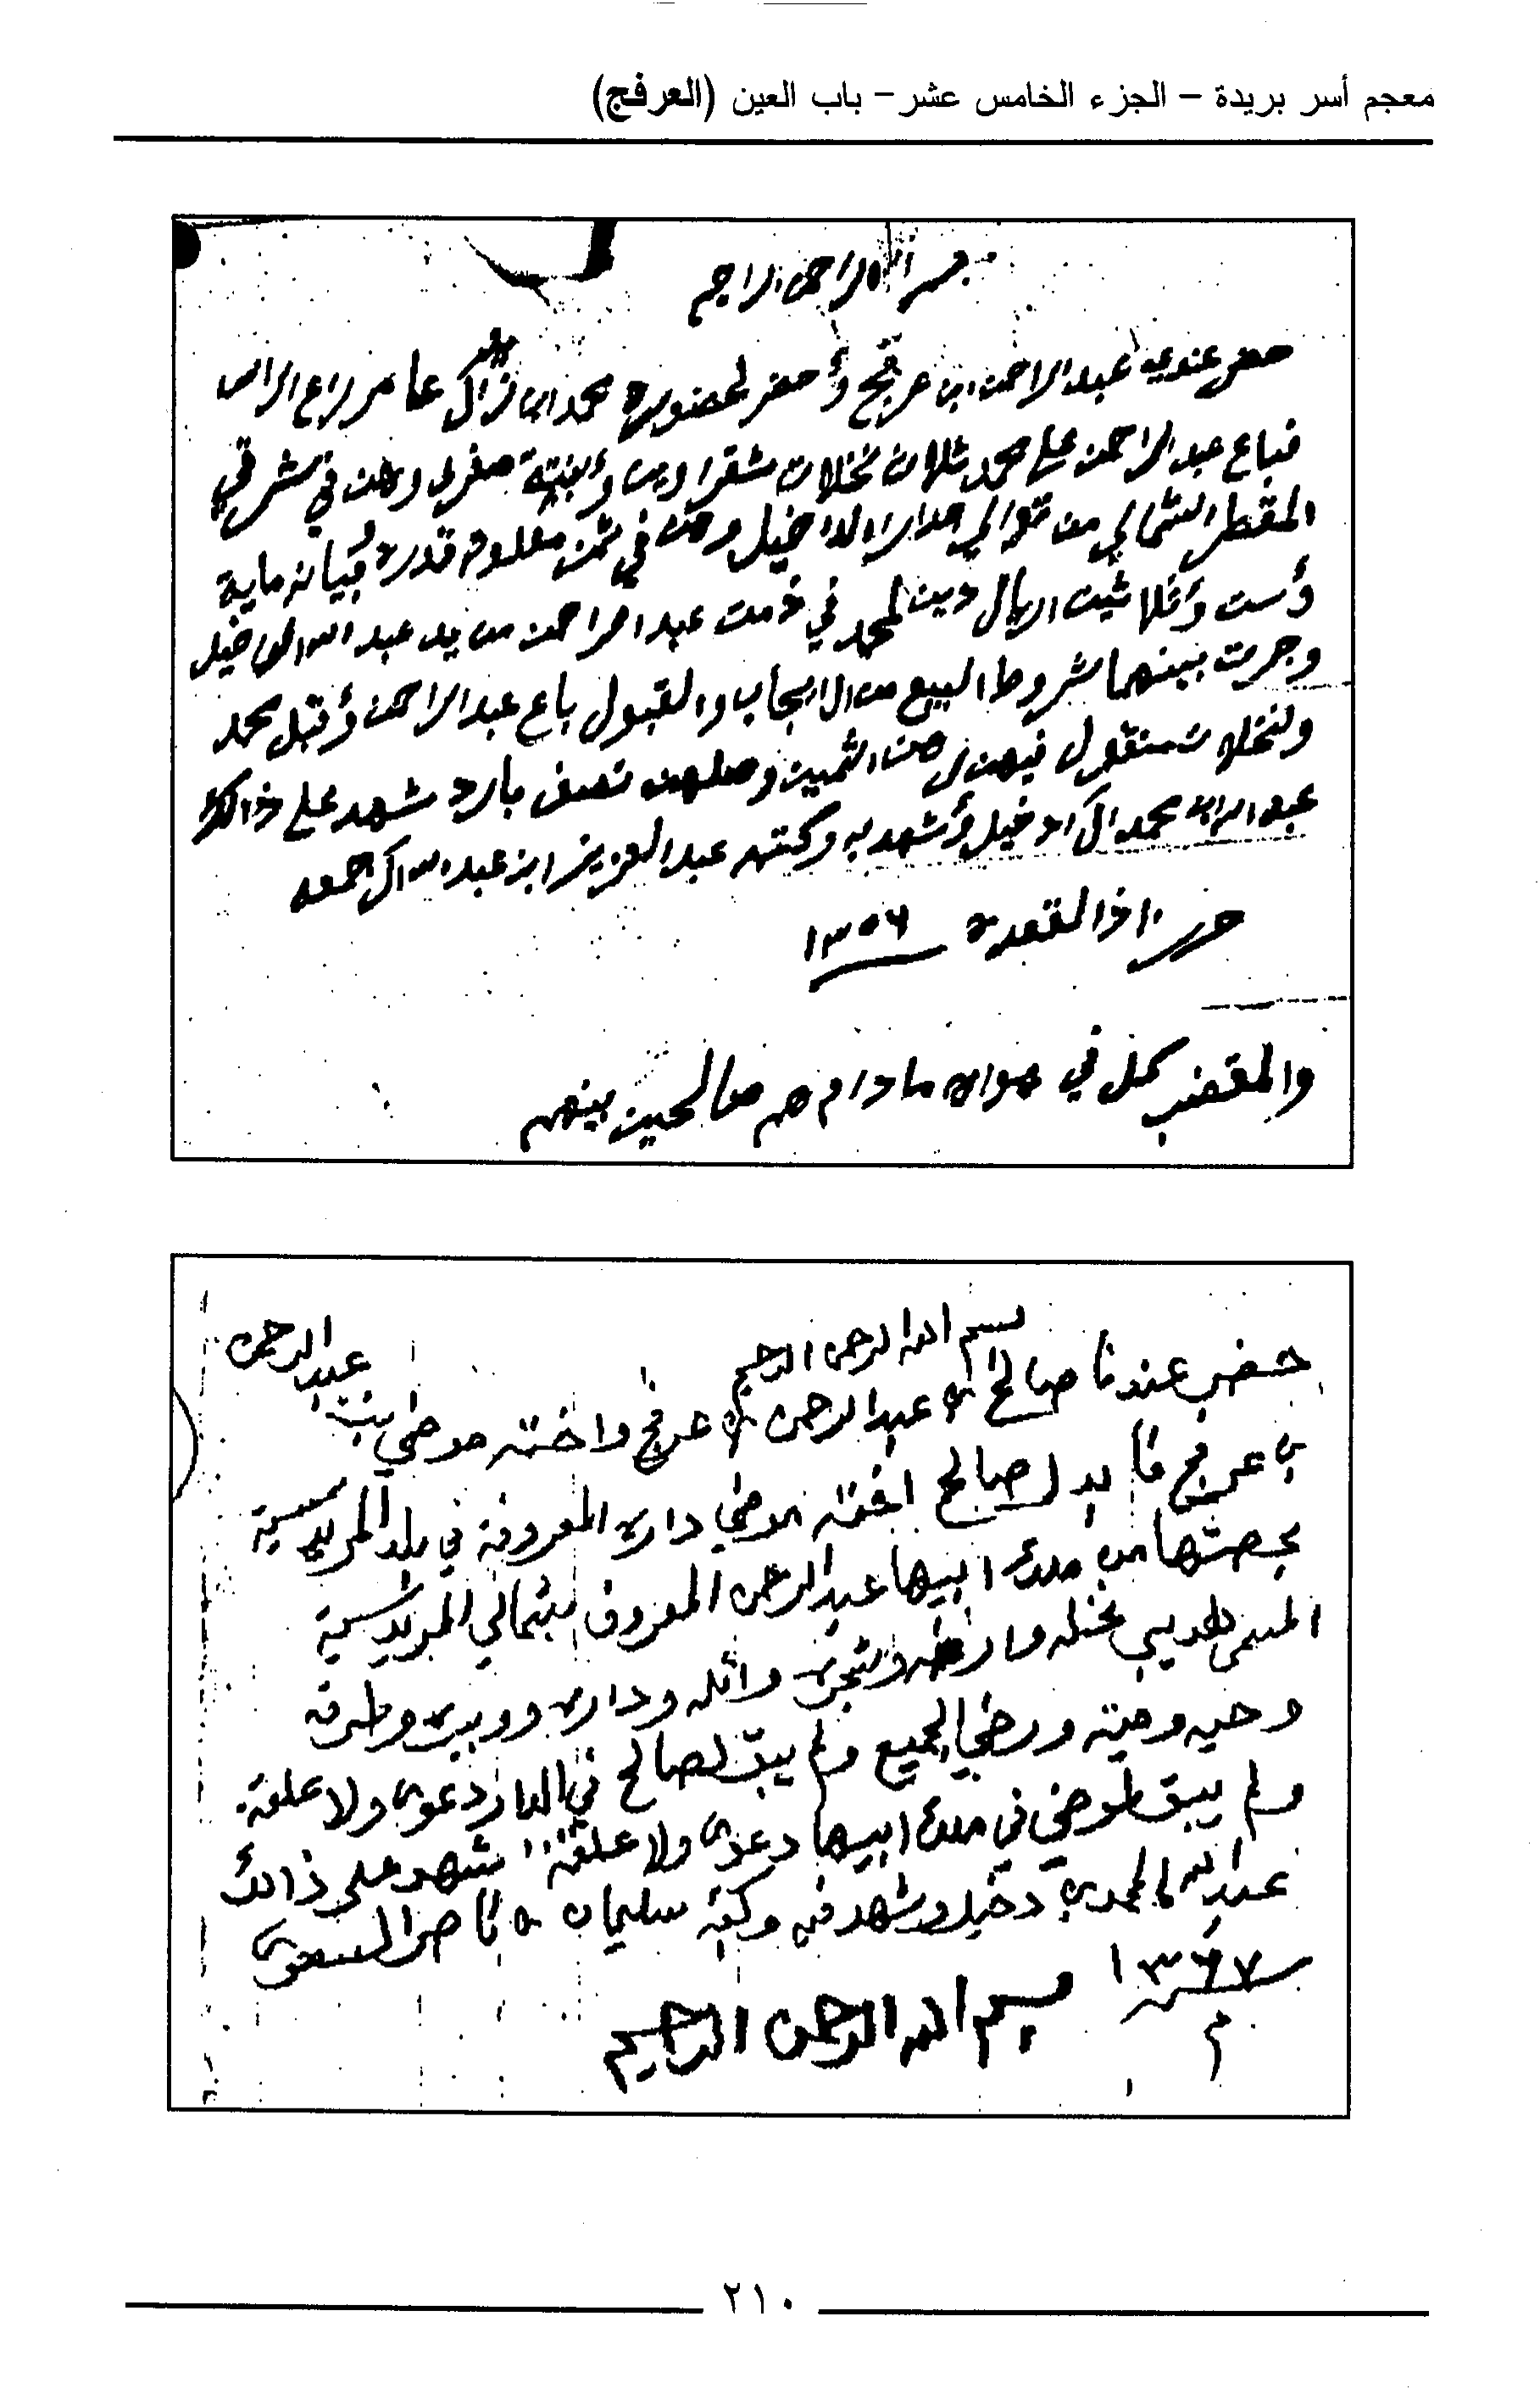 معجم أسر بريدة – الجزء الخامس عشر – باب العين (العرفج)
بسم الله الراحمن الراحيم
حضر عندي عبد الراحمن ابن عرفج وأحضر لحضوره محمد ال عامر راع الراس
فباع عبد الراحمن على محمد ثلاث نخلات شقراوين وأنبتية صفرى وهن في شرقي
المقطر الشمالي من توالي في ثمن معلوم قدره وبيانه ماية
وست وثلاثين اريال دين لمحمد في ذمت عبد الراحمن من يد عبد الله
وجرت بينهما شروط البيع من الايجاب والقبول باع عبد الراحمن وقبل محمد
ولنخلات منقول فيهن الثمين وصلهن نصف بارد شهد على ذالك
عبد الله محمد ال ادخيل وشهد به وكتبه عبد العزيز ابن عبد الله ال جمعه
حرر ١٠ ذا القعدة ١٣٥٦
والمقضب كمل في هواه مادام هم صالحين بينهم
بسم الله الرحمن الرحيم
حضر عندنا صالح ال عبد الرحمن ال عرفج واختـه موضي بنت عبد الرحمن
بن عرفج فابدل صالح اختـه موضي داره المعروفة في بلد المريدسية
بحصتها من ملك ابيها عبد الرحمن المعروف بشمالي المريدسية
المسمى نخله وارضه وشجره واثله وداره وبيره وطرفه
وحيه وميته ورضي الجميع ولم يبق لصالح في الدار دعوى ولا علقة
ولم يبق لموضي في ملك ابيها دعوى ولا علقة شهد على ذالك
عبد الله المحمد دخيل وشهد فيه وكتبه سليمان بن ناصر السعوي
١٣٦٧
م
بسم الله الرحمن الرحيم
٢١٠